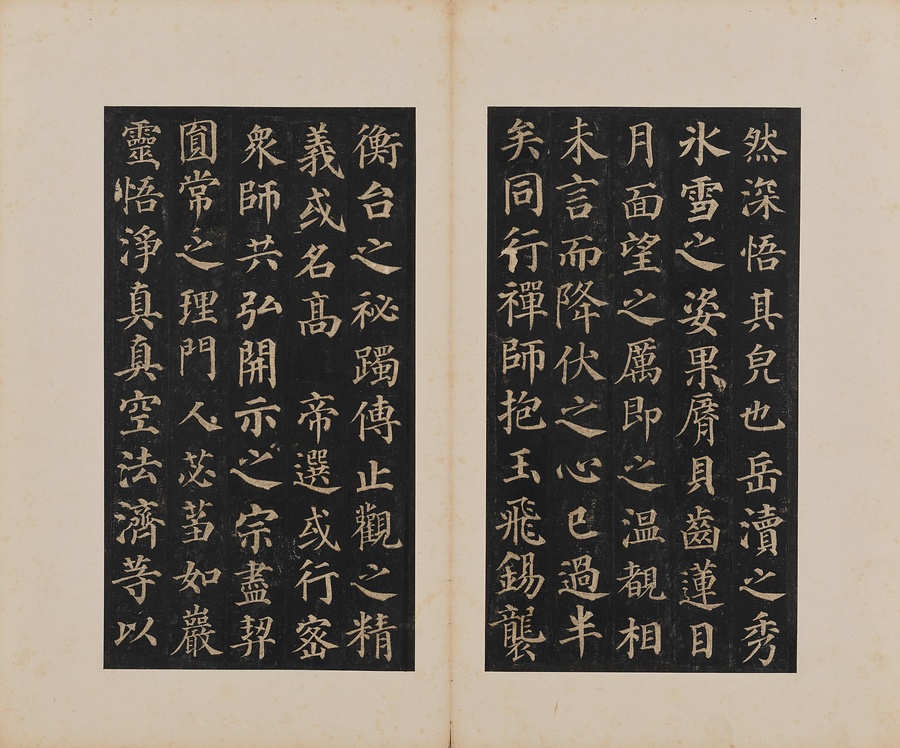 然深悟其皃也岳瀆之秀
氷雪之姿果脣貝齒蓮目
月面望之厲即之温覩相
未言而降伏之心已過半
矣同行禪師抱玉飛錫襲
衡台之秘躅傳止觀之精
義或名高帝選或行密
衆師共弘開示之宗盡契
圎常之理門人苾蒭如巖
靈悟淨真真空法濟等以